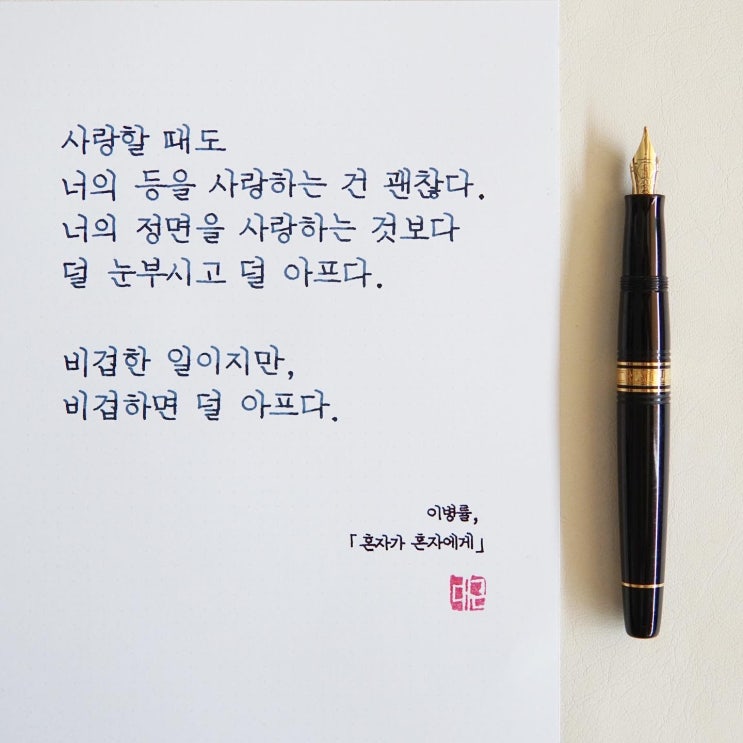 사랑할 때도
너의 등을 사랑하는 건 괜찮다.
너의 정면을 사랑하는 것보다
덜 눈부시고 덜 아프다.
비겁한 일이지만,
비겁하면 덜 아프다.
이병률,
「혼자가 혼자에게」